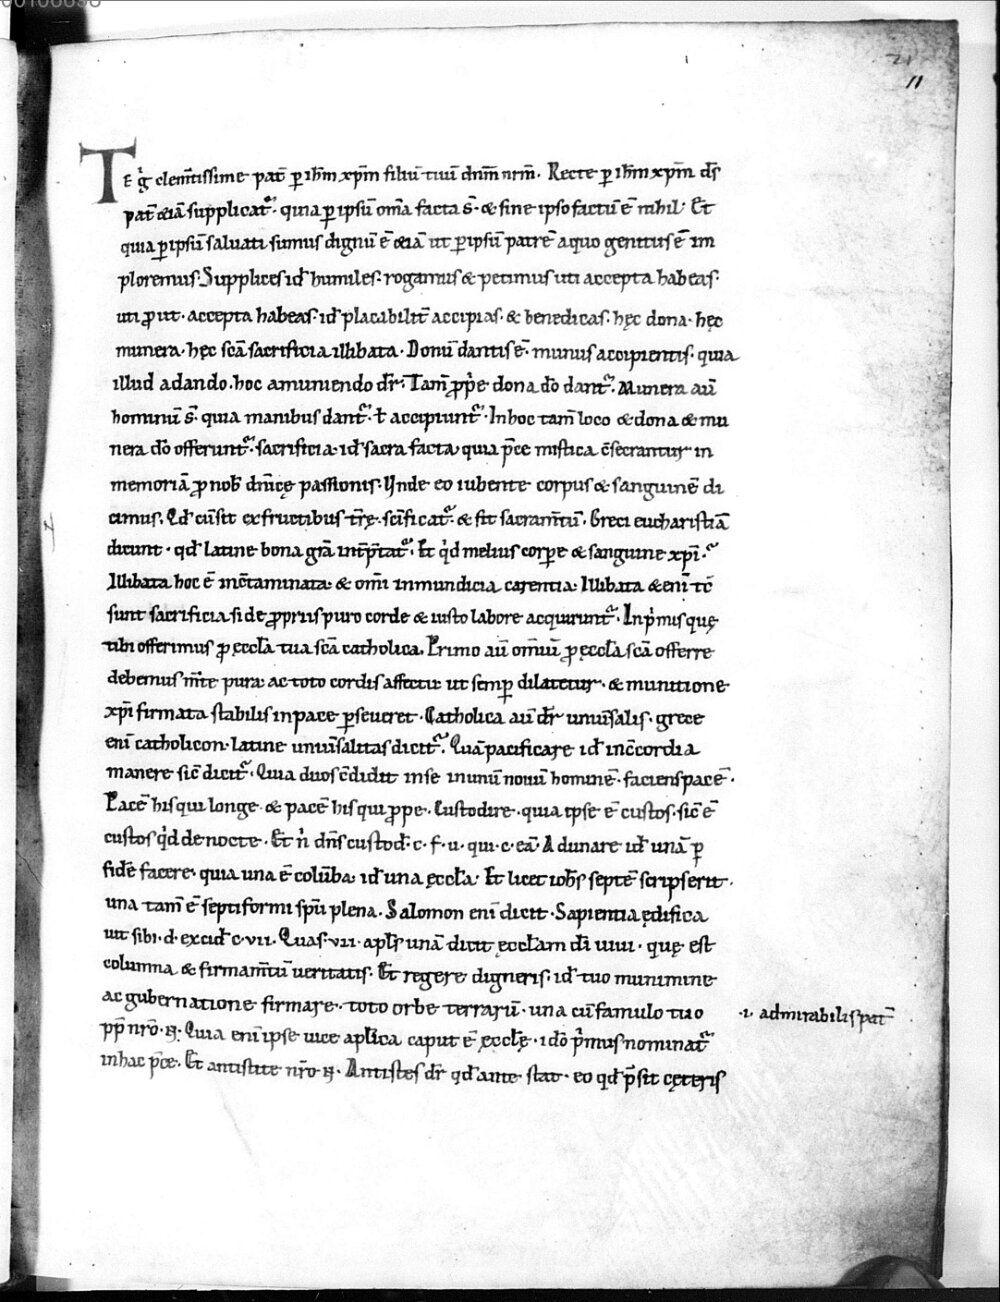 21
11
TE g̊ clem̄tissime pat̄ ꝑ ihm̄ xp̄m filiū tuū dn̄m nr̄m. Recte ꝑ ihm̄ xp̄m dš
pat̄ etiā supplicat᷑. quia ꝑ ipsū om̄a facta s̄. & sine ipso factū ē nihil. Et
quia ꝑ ipsū saluati sumus dignū ē etiā ut ꝑ ipsū patrē a quo genitus ē im
ploremus. Supplices id̄ humiles. rogamus & petimus uti accepta habeas.
uti ꝓ ut. accepta habeas. id̄ placabilit̄ accipias. & benedicas. hęc dona. hęc
munera. hęc sc̄a sacrificia illibata. Donū dantis ē. munus accipientis. quia
illud a dando. hoc a muniendo dr̄. Tam̄ ꝓp̄e dona dō dant᷑. Munera aū
hominū s̄. quia manibus dant᷑. ł accipiunt᷑. In hoc tam̄ loco & dona & mu
nera dō offerunt᷑. sacrificia. id̄ sacra facta. quia p̄ce mistica c̄secrantur in
memoriā ꝓ nob̄ dn̄icę passionis. Unde eo iubente corpus & sanguinē di
cimus. Qd̄ cū sit ex fructibus tr̄ę. sc̄ificat᷑. & fit sacram̄tū. Greci eucharistiā
dicunt. qd̄ latine bona grā int̄p̄tat᷑. Et qͥd melius corꝑe & sanguine xp̄i.
Illibata hoc ē inc̄taminata. & om̄i inmundicia carentia. Illibata & eni᷑ tc̄
sunt sacrificia si de ꝓpriis puro corde & iusto labore acquirunt᷑. In pͥmis quę
tibi offerimus ꝓ ęccl̄a tua sc̄a catholica. Primo aū om̄iū ꝓ ęccl̄a sc̄a offerre
debemus m̄te pura. ac toto cordis affectu. ut semꝑ dilatetur. & munitione
xp̄i firmata stabilis in pace ꝑseueret. Catholica aū dr̄ uniū̄salis. grece
eni᷑ catholicon. latine uniū̄salitas dicit᷑. Quā pacificare id̄ in c̄cordia
manere sic̄ dicit᷑. Quia duos c̄didit in se in unū nouū hominē. faciens pacē.
Pacē his qui longe. & pacē his qui ꝓpe. Custodire. quia ipse ē custos. sic̄ ē
custos qͥd de nocte. Et n̄ dn̄s custod̄. c. f. u. qui. c. eā. Adunare id̄ unā ꝑ
fidē facere. quia una ē colūba. id̄ una ęccl̄a. Et licet ioh̄s septē scripserit.
una tam̄ ē septiformi spū plena. Salomon eni᷑ dicit. Sapientia ędifica
uit sibi. d. excid̄ c. vii. Quas. vii. apl̄s unā dicit ęccl̄am dī uiui. quę est
columna & firmam̄tū ueritatis. Et regere digneris. id̄ tuo munimine
ac gubernatione firmare. toto orbe terrarū. una cū famulo tuo
.i. admirabilis pat̄
pp̄ nr̄o. N. Quia eni᷑ ipse uice apl̄ica caput ē ęccl̄ę. idō pͥmus nominat᷑
in hac p̄ce. Et antistite nr̄o N. Antistes dr̄ qd̄ ante stat. eo qd̄ p̄sit cęteris